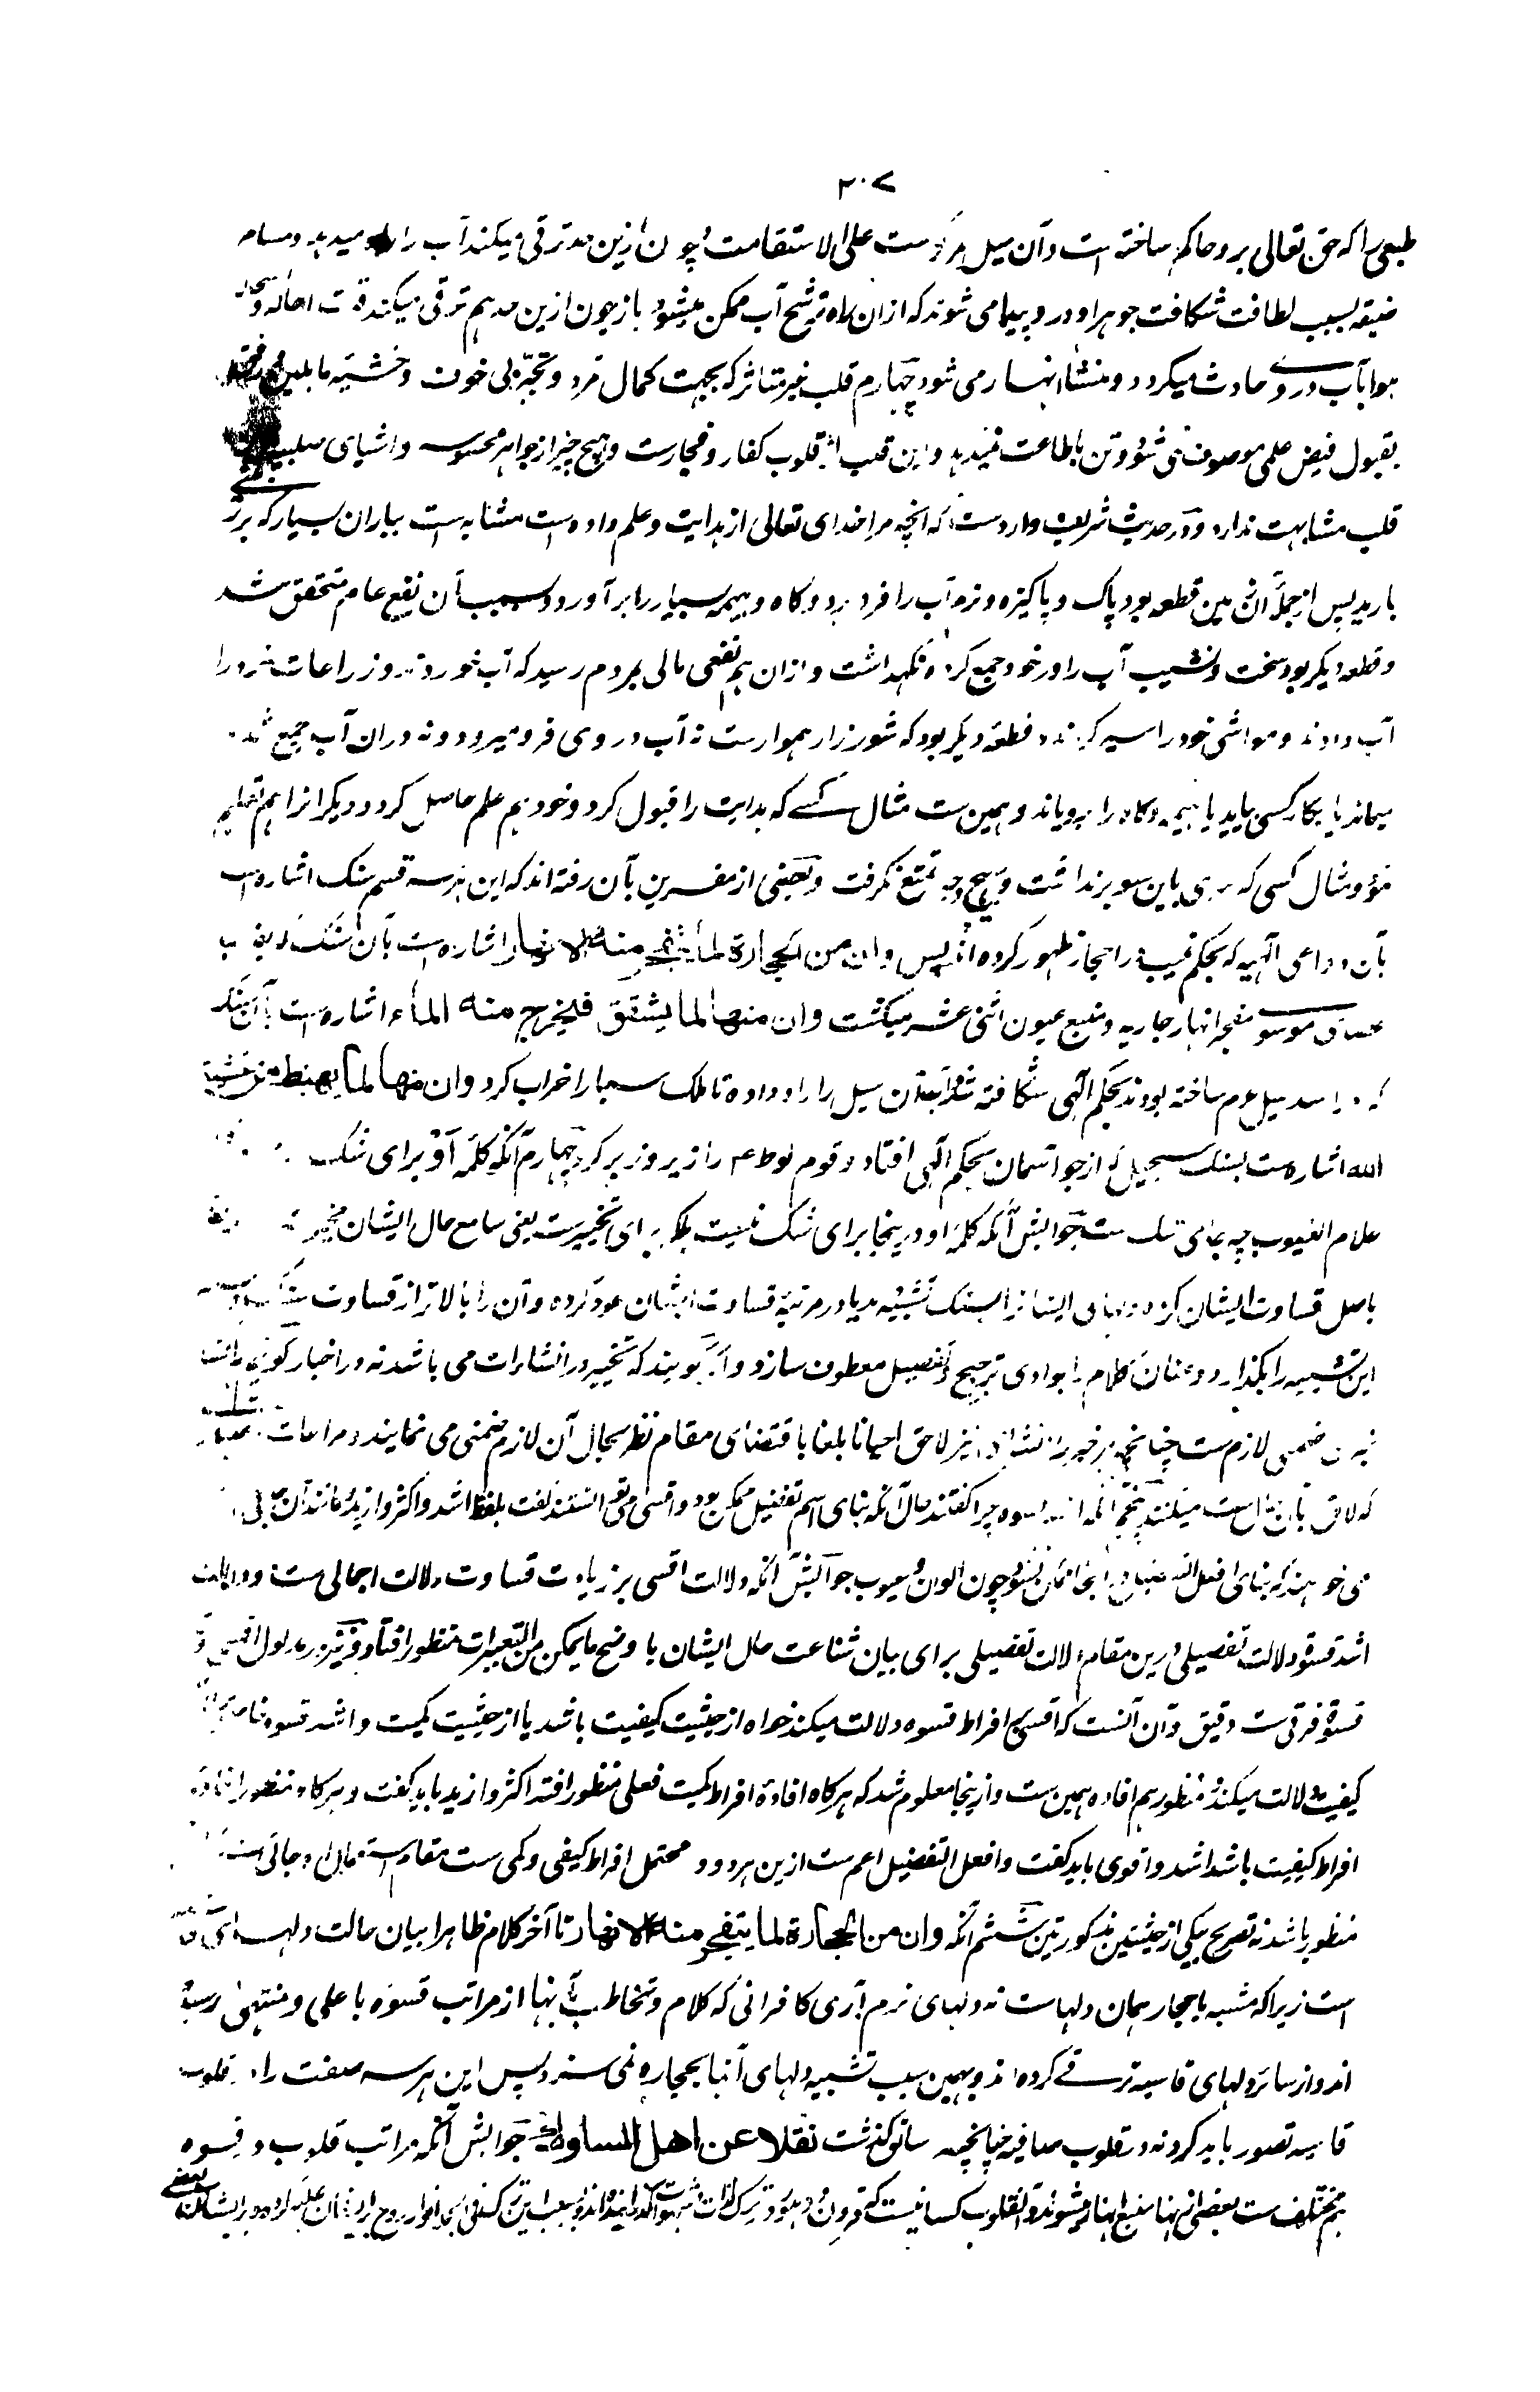 ۲۰۷
طبعی را که حق تعالی برو حاکم ساخته است و آن میل مرکزست علی الاستقامت و چون ازین حد ترقی میکند آب را راه میدهد و مسام
ضیقه بسبب لطافت شگافت جوهر او درو پیدا می شوند که ازان راه ترشح آب ممکن میشود باز چون ازین حد هم ترقی میکند قوت احاله
هوا بآب دروی حادث میگردد و منشأ انهار می شود چهارم قلب غیر متأثر که بجهت کمال تمرد و تجبر بی خوف و خشیه ما بلین
بقبول فیض علمی موصوف نمی شود و تن باطاعت نمیدهد و این قلب اثر قلوب کفار و فجارست و هیچ چیز از جواهر محسوسه و اشیای صلبیه
قلب مشابهت ندارد و در حدیث شریف واردست که آنچه مرا خدای تعالی از هدایت و علم داده است مشابه است بباران بسیار که بر
بارید پس از جمله آن زمین قطعه بود پاک و پاکیزه و نرم آب را فرو برد و گاه و هیمه بسیار را برآورد و بسبب آن نفع عام متحقق شد
و قطعه دیگر بود سخت و نشیب آب را در خود جمع کرده نگهداشت و ازان هم نفعی مالی بمردم رسید که آب خوردند و زراعات خود را
آب دادند و مواشی خود را سیر کردند و قطعه دیگر بود که شوره زار هموارست نه آب در وی فرو میرود و نه دران آب جمع شده
میماند یا بکار کسی بیاید یا هیمه و گاه را برویاند و همین ست مثال کسے که هدایت را قبول کرد و خود هم علم حاصل کرد و دیگرانرا هم تعلیم
نمود و مثال کسی که سری باین سو برنداشت و بهیچ وجه تمتع نگرفت و بعضی از مفسرین بآن رفته اند که این هر سه قسم سنگ اشاره است
بآن دواعی الهیه که بحکم غیب در احجار ظهور کرده اند پس وان من الحجارة لما یتفجر منه الانهار اشاره است بآن سنگ که بضرب
عصای موسوے منفجر انهار جاریه و منبع عیون اثنی عشر میگشت وان منها لما یشقق فیخرج منه الماء اشاره است بآن سنگ
که در سد سیل عرم ساخته بودند بحکم الهی شگافته شد و آن سیل را راه داده تا ملک سبا را خراب کرد وان منها لما یهبط من خشیة
الله اشاره ست بسنگ سجیل که از جو آسمان بحکم الهی افتاد و قوم لوط ع م را زیر و زبر کرد چهارم آنکه کلمه أو برای شک
علام الغیوب چه جای شک ست جوابش آنکه کلمه او درینجا برای شک نیست بلکه برای تخییرست یعنی سامع حال ایشان مخیر
باصل قساوت ایشان کرده دلهای ایشانرا بسنگ تشبیه بدهد یا در مرتبه قساوت ایشان غور کرده و آن را بالاتر از قساوت سنگ
این تشبیه را بگذارد و عنان کلام را بوادی ترجیح و تفصیل معطوف سازد و اگر گویند که تخییر در انشاءات می باشد نه در اخبار گوئیم
ضمنی لازم ست چنانچه هر خبر را انشائی نیز لاحق احیانا بلغا باقتضای مقام نظر بحال آن لازم ضمنی می نمایند و مراعات
که لائق بآن انشاست میکنند پنجم آنکه اشد قسوه چرا گفتند حال آنکه بنای اسم تفضیل ممکن بود و اقسی می توانستند گفت بلفظ اشد و اکثر و ازید و مانند آن
می خواهند که بنای افعل التفضیل در آنجا ممکن نشود چون الوان و عیوب جوابش آنکه دلالت اقسی بر زیادت قساوت دلالت اجمالی ست و دلالت
اشد قسوة دلالت تفصیلی و درین مقام دلالت تفصیلی برای بیان شناعت حال ایشان باوضح ما یمکن من التعبیرات منظور افتاد و نیز در مدلول اقسی و
قسوة فرقی ست دقیق و آن آنست که اقسی بر افراط قسوه دلالت میکند خواه از حیثیت کیفیت باشد یا از حیثیت کمیت و اشد قسوه خاص
کیفیت دلالت میکند و منظور هم افاده همین ست و ازینجا معلوم شد که هرگاه افاده افراط کمیت فعلی منظور افتد اکثر و ازید باید گفت و هرگاه منظور افاده
افراط کیفیت باشد اشد و اقوی باید گفت و افعل التفضیل اعم ست ازین هر دو و محتمل افراط کیفی و کمی ست
منظور باشد نه تصریح بیکی از حیثیتین مذکورتین ششم آنکه وان من الحجارة لما یتفجر منه الانهار تا آخر کلام ظاهرا بیان حالت دلهای
است زیرا که مشبه باحجار همان دلهاست نه دلهای نرم آری کافرانی که کلام و تخاطب بآنها از مراتب قسوه باعلی و منتهی رسیده
اند و از سائر دلهای قاسیه ترقی کرده اند و بهمین سبب تشبیه دلهای آنها بحجاره نمی سزد پس این هر سه صفت را در قلوب
قاسیه تصور باید کرد نه در قلوب صافیه چنانچه سابق گذشت نقلا عن اهل السلوک جوابش آنکه مراتب قلوب در قسوه
هم مختلف ست بعضی از آنها منبع انهار میشوند و آن قلوب کسانیست که